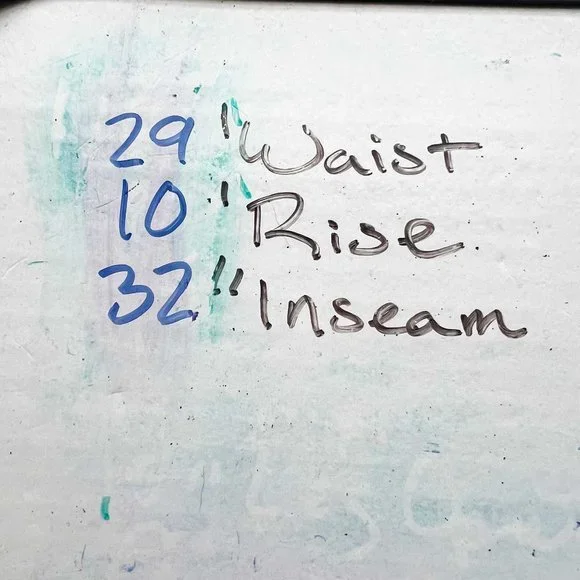 29" Waist
10" Rise
32" Inseam